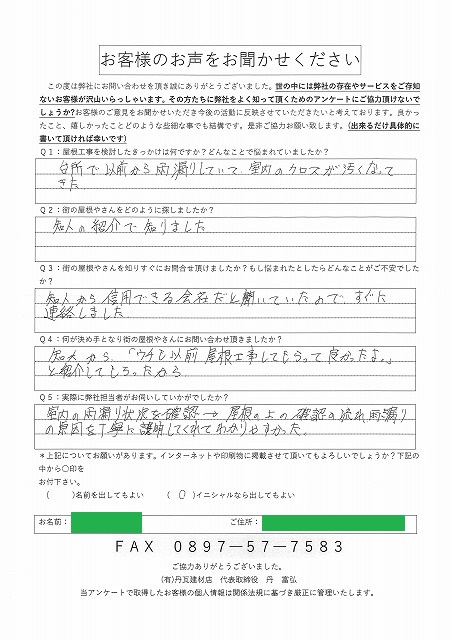 お客様のお声をお聞かせください
この度は弊社にお問い合わせを頂き誠にありがとうございました。世の中には弊社の存在やサービスをご存知
ないお客様が沢山いらっしゃいます。その方たちに弊社をよく知って頂くためのアンケートにご協力頂けないで
しょうか?お客様のご意見をお聞かせいただき今後の活動に反映させていただきたいと考えております。良かっ
たこと、嬉しかったことどのような些細な事でも結構です。是非ご協力お願い致します。(出来るだけ具体的に
書いて頂ければ幸いです)
Q1:屋根工事を検討したきっかけは何ですか?どんなことで悩まれていましたか?
台所で以前から雨漏りしていて、室内のクロスが汚くなって
きた。
Q2:街の屋根やさんをどのように探しましたか?
知人の紹介で知りました
Q3:街の屋根やさんを知りすぐにお問合せ頂けましたか?もし悩まれたとしたらどんなことがご不安でした
か?
知人から信用できる会社だと聞いていたので、すぐに
連絡しました.
Q4:何が決め手となり街の屋根やさんにお問い合わせ頂きましたか?
知人から、「ウチも以前屋根工事してもらって良かったよ。」
と紹介してもらったから.
Q5:実際に弊社担当者がお伺いしていかがでしたか?
室内の雨漏り状況を確認→屋根の上の確認の流れ、雨漏り
の原因を丁寧に説明してくれてわかりやすかった.
*上記についてお願いがあります。インターネットや印刷物に掲載させて頂いてもよろしいでしょうか?下記の
中から〇印を
お付下さい。
( )名前を出してもよい ( O )イニシャルなら出してもよい
お名前: ご住所:
FAX 0897-57-7583
ご協力ありがとうございました。
(有)丹瓦建材店 代表取締役 丹 富弘
当アンケートで取得したお客様の個人情報は関係法規に基づき厳正に管理いたします。